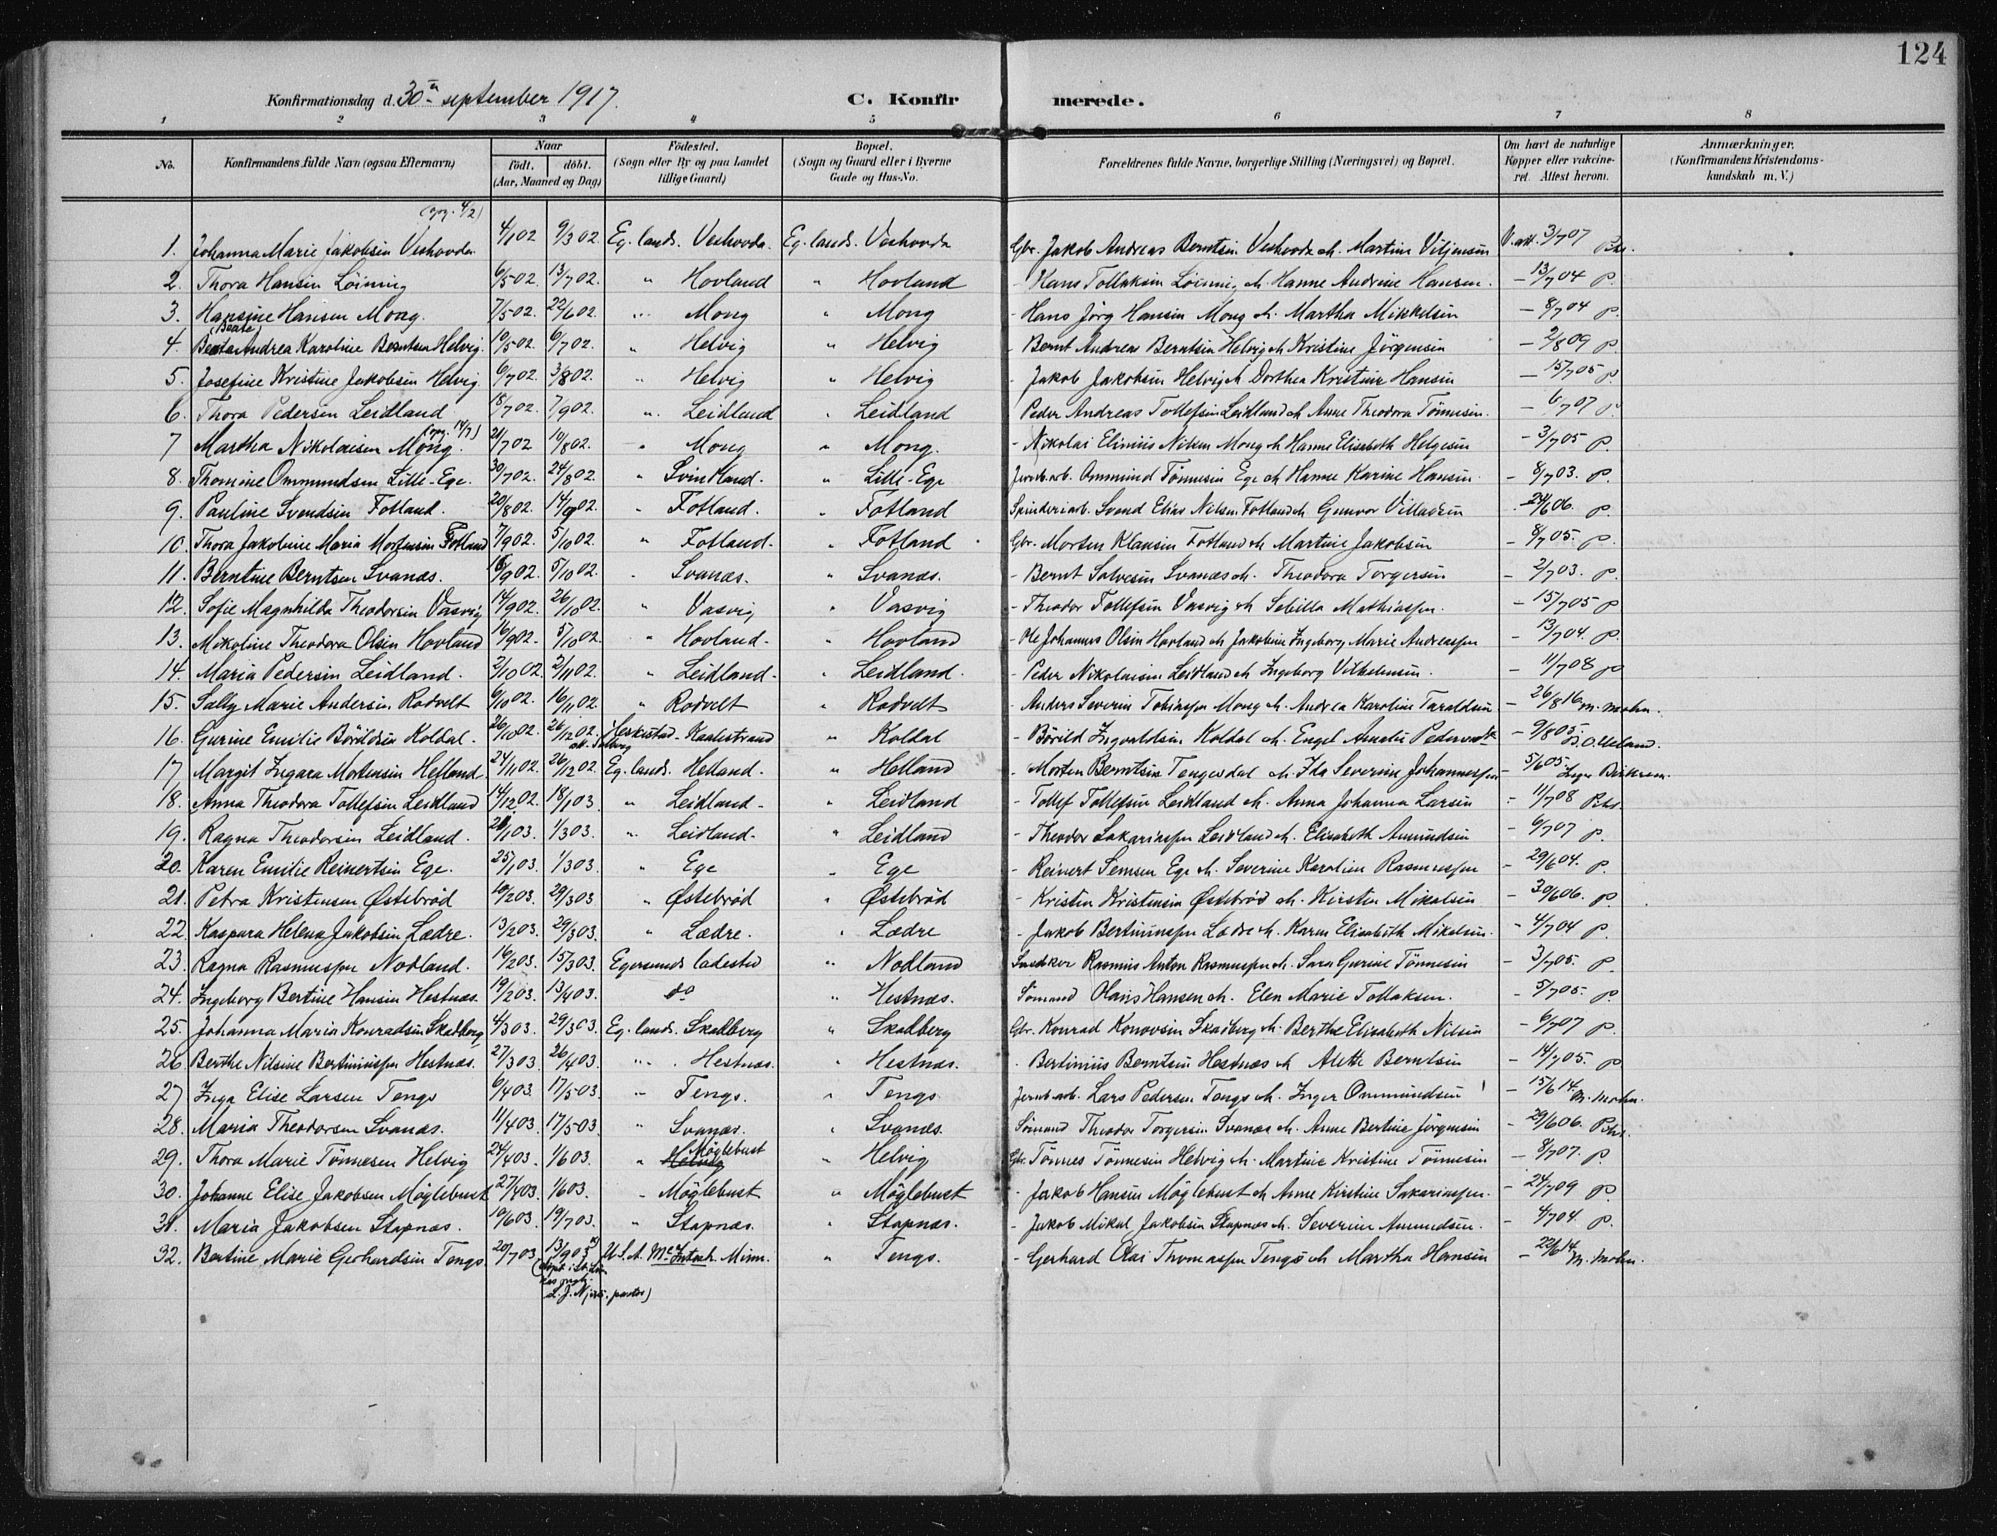 124
Konfirmationsdag d. 30 september 1917.
C. Konfirmerede.
1 2 3 4 5 6 7 8
No. Konfirmandens fulde Navn (ogsaa Efternavn) Naar født. døbt. (Aar, Maaned og Dag) Fødested. (Sogn eller By og paa Landet tillige Gaard) Bopæl. (Sogn og Gaard eller i Byerne Gade og Hus-No. Forældrenes fulde Navne, borgerlige Stilling (Næringsvei) og Bopæl. Om havt de naturlige Kopper eller vakcineret. Attest herom. Anmærkninger. (Konfirmandens Kristendomskundskab m. V.)
1. Johanna Marie Jakobsen Veshovda 4/1 02 9/3 02. Eg. lands. Veshovda. Eg. lands. Veshovda Gbr. Jakob Andreas Berntsen Veshovda Martine 3/7 07
2. Thora Hansen Löining 6/5 02. 13/7 02. " Hovland " Hovland - Hans Tollaksen Löining Hanne Andrine Hansen. - 13/7 04 p.
3. Hansine Hansen Mong. 7/5 02. 22/6 02. " Mong " Mong - Hans Jörg Hansen Mong Martha Mikkelsen - 8/7 04 p.
4. (Beate) Andrea Karoline Berntsen Helvig. 10/5 02. 6/7 02. " Helvig " Helvig - Bernt Andreas Berntsen Helvig Kristine Jörgensen - 2/8 09 p
5. Josefine Kristine Jakobsen Helvig. 6/7 02. 3/8 02. " Helvig " Helvig - Jakob Jakobsen Helvig Dorthea Kristine Hansen - 15/7 05 p.
6. Thora Pedersen Leidland. 18/7 02. 7/9 02. " Leidland " Leidland - Peder Andreas Tollefsen Leidland Anne Theodora Tönnesen. - 6/7 07 p
7 Martha Nikolaisen Mong. 21/7 02 10/8 02. " Mong " Mong. - Nikolai Elinius Nilsen Mong Hanne Elisabeth Helgesen - 3/7 05 p.
8. Thomine Ommundsen Lille-Ege. 30/7 02. 24/8 02. " Svindland. " Lille-Ege Jernb.arb. Ommund Tönnesen Ege Hanne Karine Hansen. - 8/7 03. p.
9. Pauline Svendsen Fotland. 20/8 02. 14/9 02. " Fotland. " Fotland Spinderiarb. Svend Elias Nilsen Fotland Gunvor Villadsen - 24/6 06. p.
10. Thora Jakobine Maria Mortensen Fotland 7/9 02. 5/10 02. " Fotland. " Fotland Gbr. Morten Klausen Fotland Martine Jakobsen - 8/7 05. p.
11. Berntine Berntsen Svanæs. 15/9 02. 5/10 02. " Svanæs. " Svanæs. - Bernt Salvesen Svanæs Theodora Torgersen - 2/7 03. p.
12. Sofie Magnhilda Theodorsen Vasvig 14/9 02. 26/10 02. " Vasvig " Vasvig - Theodor Tollefsen Vasvig Sebilla Mathiassen. - 15/7 05 p
13. Mikoline Theodora Olsen Hovland 16/9 02. 5/10 02. " Hovland. " Hovland - Ole Johannes Olsen Hovland Jakobine Ingeborg Marie Andreassen - 13/7 04. p.
14. Maria Pedersen Leidland. 2/10 02. 2/11 02. " Leidland. " Leidland. - Peder Nikolaisen Leidland Ingeborg Vilhelmsen. - 11/7 08 p
15. Sally Marie Andersen Rodvelt 6/10 02. 16/11 02. " Rodvelt " Rodvelt - Anders Severin Tobiassen Mong Andrea Karoline Taraldsen - 26/8 16 M. Mohn.
16. Gurine Emilie Börildsen Koldal. 26/10 02. 26/12 02. Heskestad - Kaalestrand " Koldal - Börild Ingvaldsen Koldal Engel Amalie - 9/8 05
17. Margit Ingara Mortensen Helland. 24/11 02. 26/12 02. Eg. lands. Helland. " Helland - Morten Berntsen Tengesdal Ida Severine Johannessen - 5/6 05.
18. Anna Theodora Tollefsen Leidland 14/12 02. 18/1 03. " Leidland. " Leidland - Tollef Tollefsen Leidland Anna Johanna Larsen - 11/7 08
19. Ragna Theodorsen Leidland. 1/3 03. " Leidland. " Leidland - Theodor Sakariassen Leidland Elisabeth Amundsen - 6/7 07 p.
20. Karen Emilie Reinertsen Ege. 25/1 03. 1/3 03. " Ege " Ege - Reinert Semsen Ege Severine Karoline Rasmussen - 29/6 04. p.
21. Petra Kristensen Østebrød 10/2 03. 29/3 03. " Østebrød " Østebrød - Kristen Kristensen Østebrød Kirsten Mikalsen - 30/6 06. p.
22. Kaspara Helena Jakobsen Lædre. 13/2 03. 29/3 03. " Lædre. " Lædre - Jakob Bertinussen Lædre Karen Elisabeth Mikalsen. - 4/7 04 p.
23. Ragna Rasmussen Nodland. 16/2 03. 15/3 03. Egersunds ladested " Nodland Snedker Rasmus Anton Rasmussen Sara Gurine Tönnesen - 3/7 05. p.
24. Ingeborg Bertine Hansen Hestnæs. 19/2 03. 13/4 03. do " Hestnæs. Sömand Olais Hansen Elen Marie Tollaksen. - 5/7 05. p
25. Johanna Maria Konradsen Skadberg 4/3 03. 29/3 03. Eg. lands. Skadberg " Skadberg Gbr. Konrad Skadberg Berthe Elisabeth Nilsen - 6/7 07 p.
26. Berthe Nilsine Bertinussen Hestnæs. 27/3 03. 26/4 03. " Hestnæs. " Hestnæs. - Bertinius Berntsen Hestnæs Alette Berntsen - 14/7 05. p
27 Inga Elise Larsen Tengs 6/4 03. 17/5 03. " Tengs. " Tengs. Jernb.arb. Lars Pedersen Tengs Inger Ommundsen - 15/6 14. M. Mohn.
28. Maria Theodorsen Svanæs. 11/4 03. 17/5 03. " Svanæs. " Svanæs. Sömand Theodor Torgersen Svanæs Anne Bertine Jörgensen - 29/6 06.
29. Thora Marie Tönnesen Helvig 24/4 03. 1/6 03. " Helvig Möglebust " Helvig Gbr. Tönnes Tönnesen Helvig Martine Kristine Tönnesen - 8/7 07. p.
30. Johanne Elise Jakobsen Möglebust 27/4 03. 1/6 03. " Möglebust " Möglebust - Jakob Hansen Möglebust Anne Kirstine Sakariassen. - 24/7 09 p.
31. Maria Jakobsen Stapnæs. 10/6 03. 19/7 03. " Stapnæs. " Stapnæs. - Jakob Mikal Jakobsen Stapnæs Severine Amundsen. - 4/7 04. p.
32. Bertine Marie Gerhardsen Tengs. 20/7 03. 13/9 03 U.S.A. McIntosh. Minn. " Tengs. - Gerhard Olai Thomassen Tengs Martha Hansen - 22/6 14. M. Mohn.